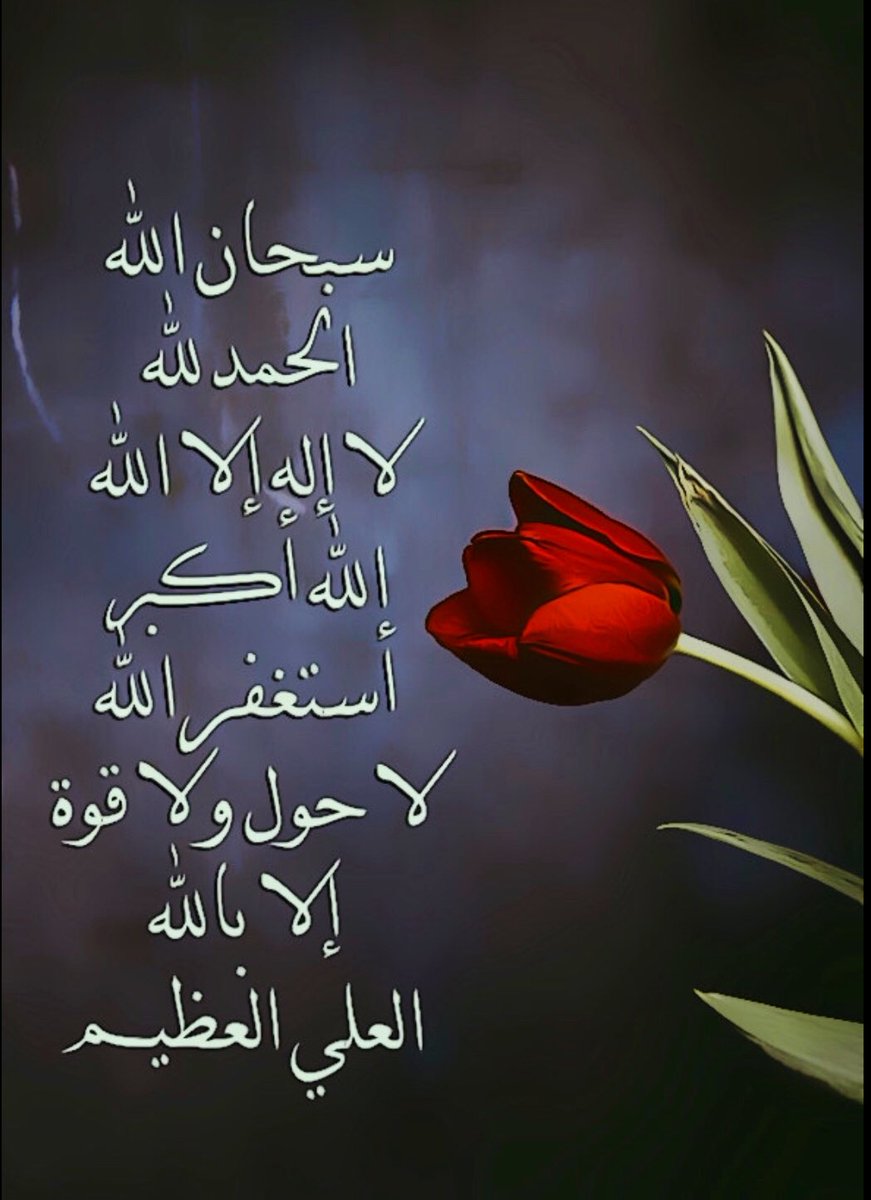 سبحان الله
الحمد لله
لا إله إلا الله
الله أكبر
أستغفر الله
لا حول ولا قوة
إلا بالله
العلي العظيم